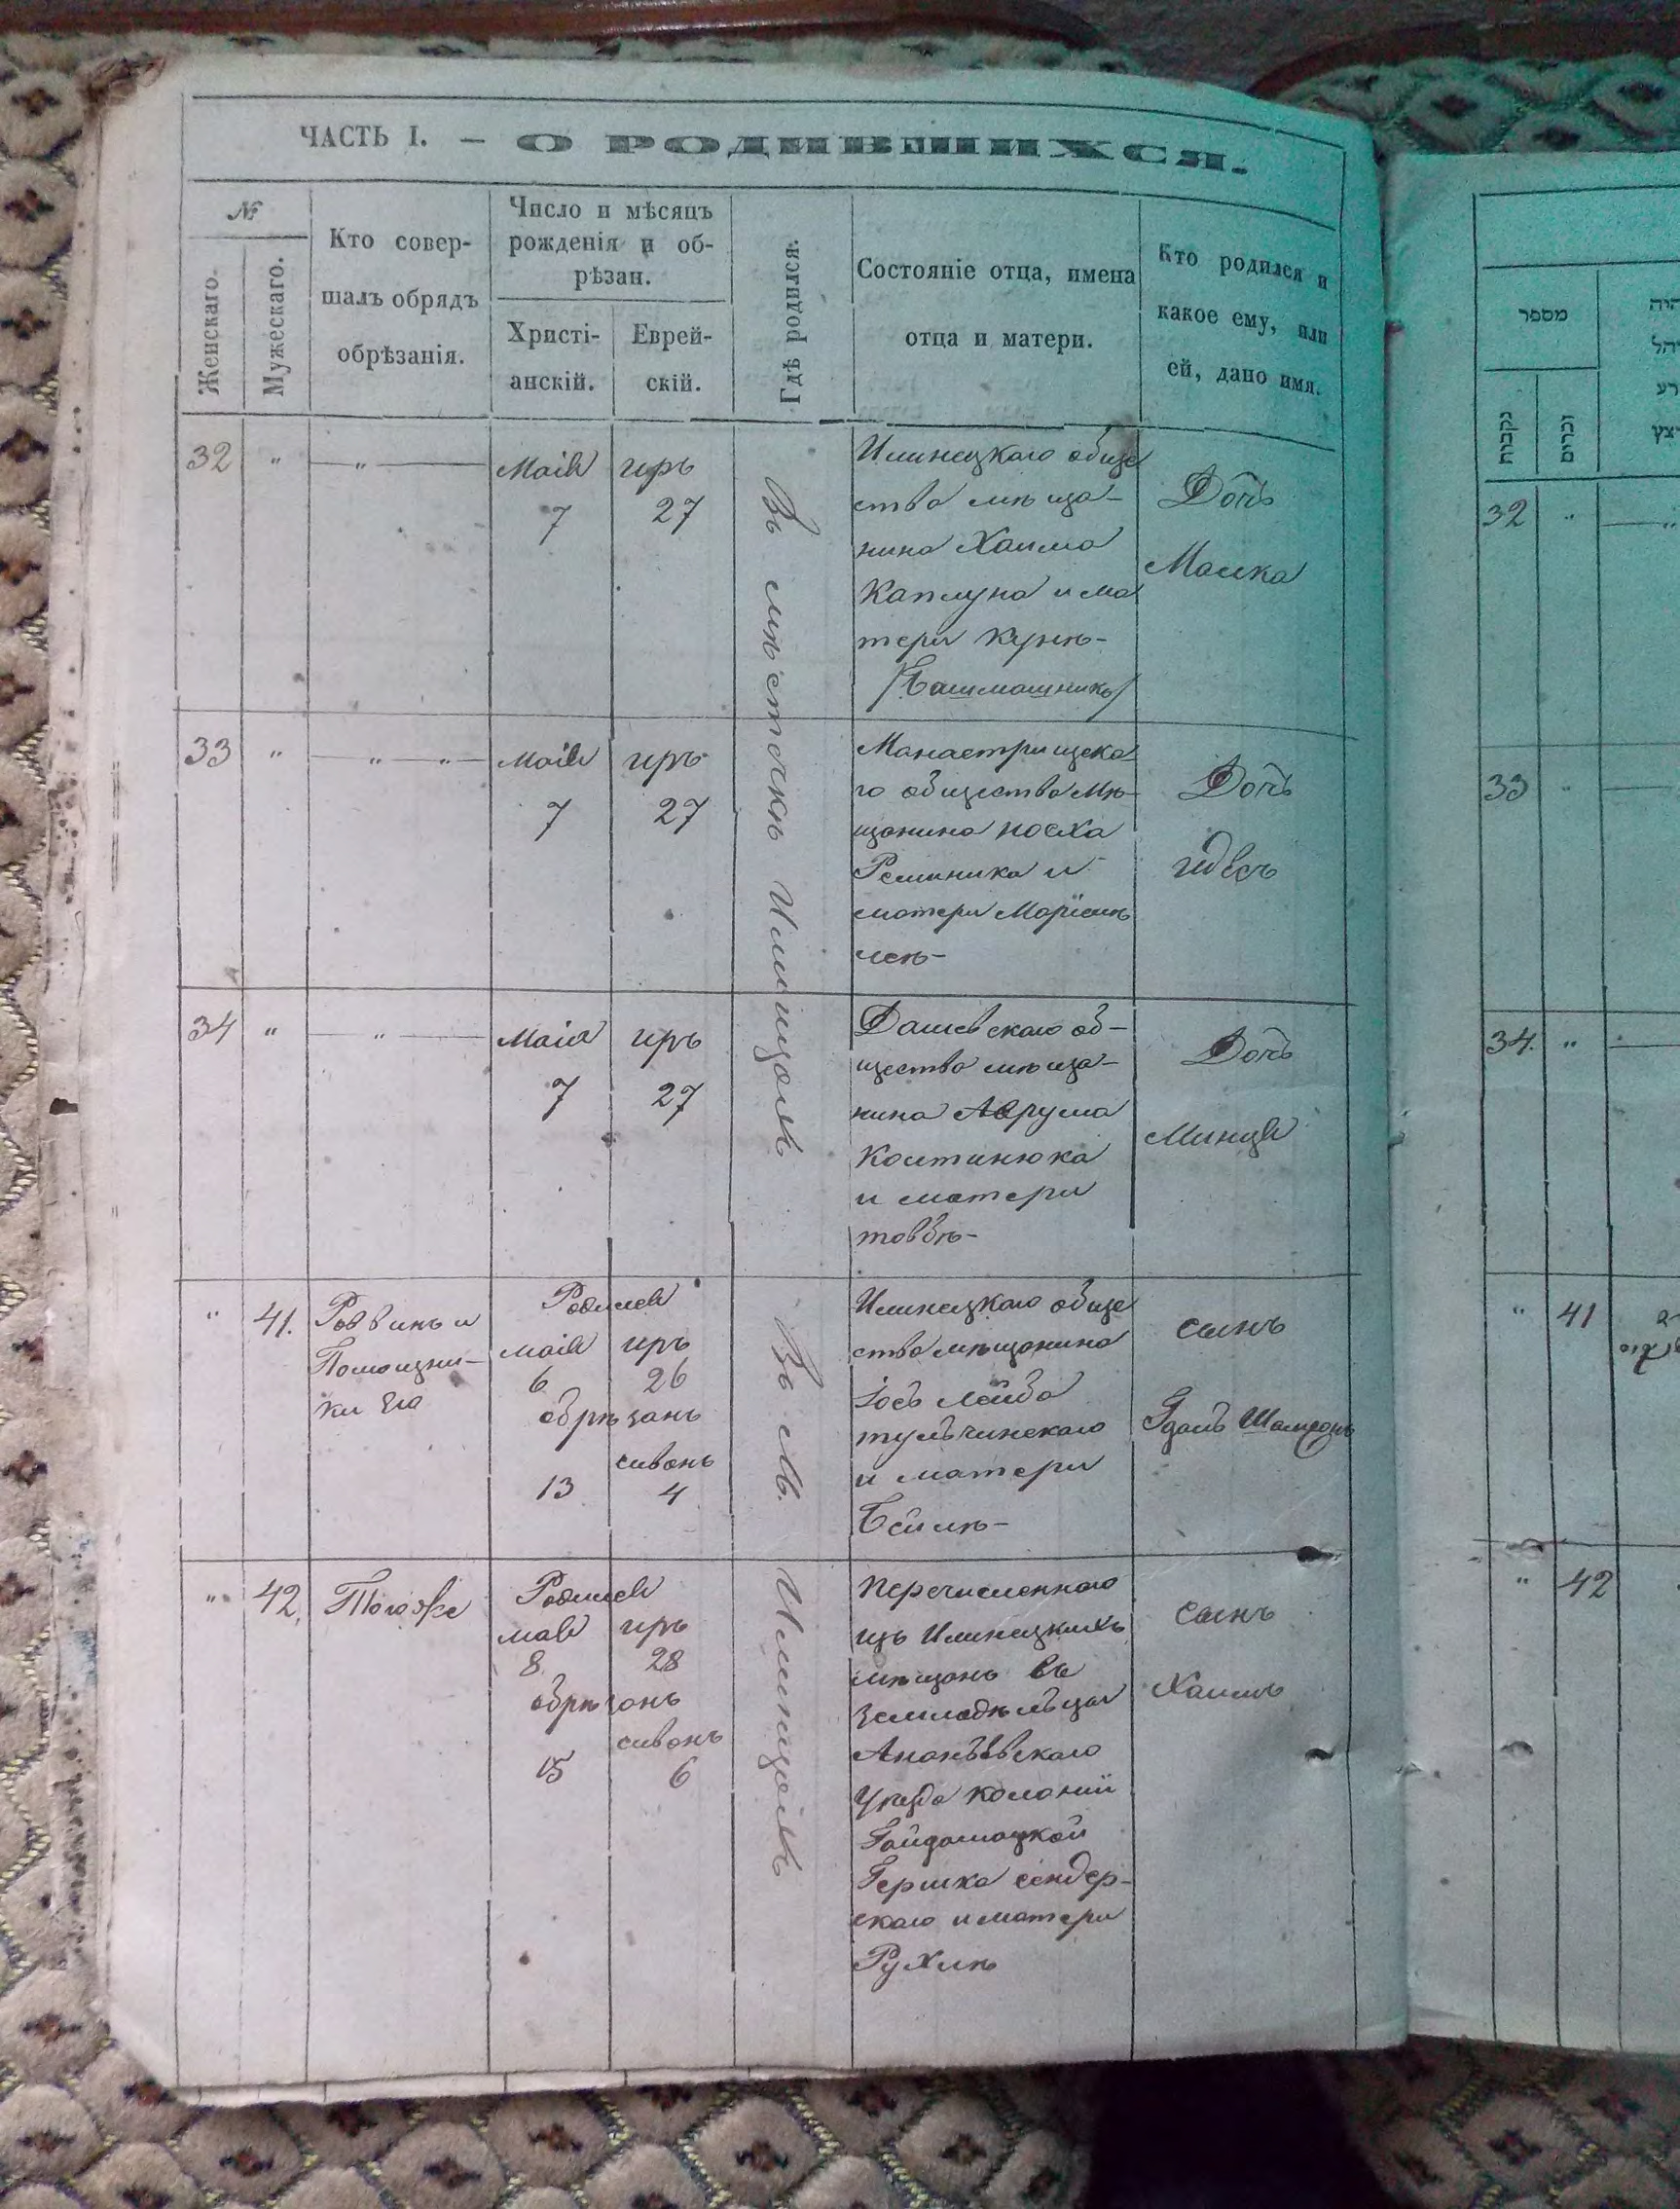 ЧАСТЬ I. — О РОДИВШИХСЯ.
№
Женскаго.
Мужескаго.
Кто совер-
шалъ обрядъ
обрѣзанія.
Число и мѣсяцъ
рожденія и об-
рѣзан.
Христі-
анскій.
Еврей-
скій.
Гдѣ родился.
Состояніе отца, имена
отца и матери.
Кто родился и
какое ему, или
ей, дано имя.
32 " — " —
Маія
7
иръ
27
Въ мѣстечкѣ Илинцахъ
Илинецкаго обще
ства мѣща-
нина Хаима
Каплуна и ма
тери Кунѣ-
/Башмашникъ/
Дочь
Малка
33 " — " — " —
Маія
7
иръ
27
Манастрищска
го общества мѣ-
щанина Іосха
и
матери Маріем
Дочь
34 " — " —
Маія
7
иръ
27
Дашевскаго об-
щества мѣща-
нина Аврума
Колтинюка
и матери
товбѣ-
Дочь
Минця
" 41.
Раввинъ и
Помощни-
ки Его
Родился
маія
6
иръ
26
обрѣзанъ
13
сивонъ
4
Въ м. Илинцахъ
Илинецкаго обще
ства мѣщанина
Іось Лейба
тульчинскаго
и матери
Бейлѣ-
сынъ
" 42.
Тогоже
Родился
мая
8
иръ
28
обрѣзанъ
15
сивонъ
6
Перечисленнаго
изъ Илинецкихъ
мѣщанъ въ
земледѣльцы
Ананьевскаго
Уѣзда Колоніи
Гайдамацкой
Гершка сендер-
скаго и матери
Рухлѣ
сынъ
Хаимъ
מספר
נקבות
זכרים
32 "
33 "
34. "
" 41
" 42